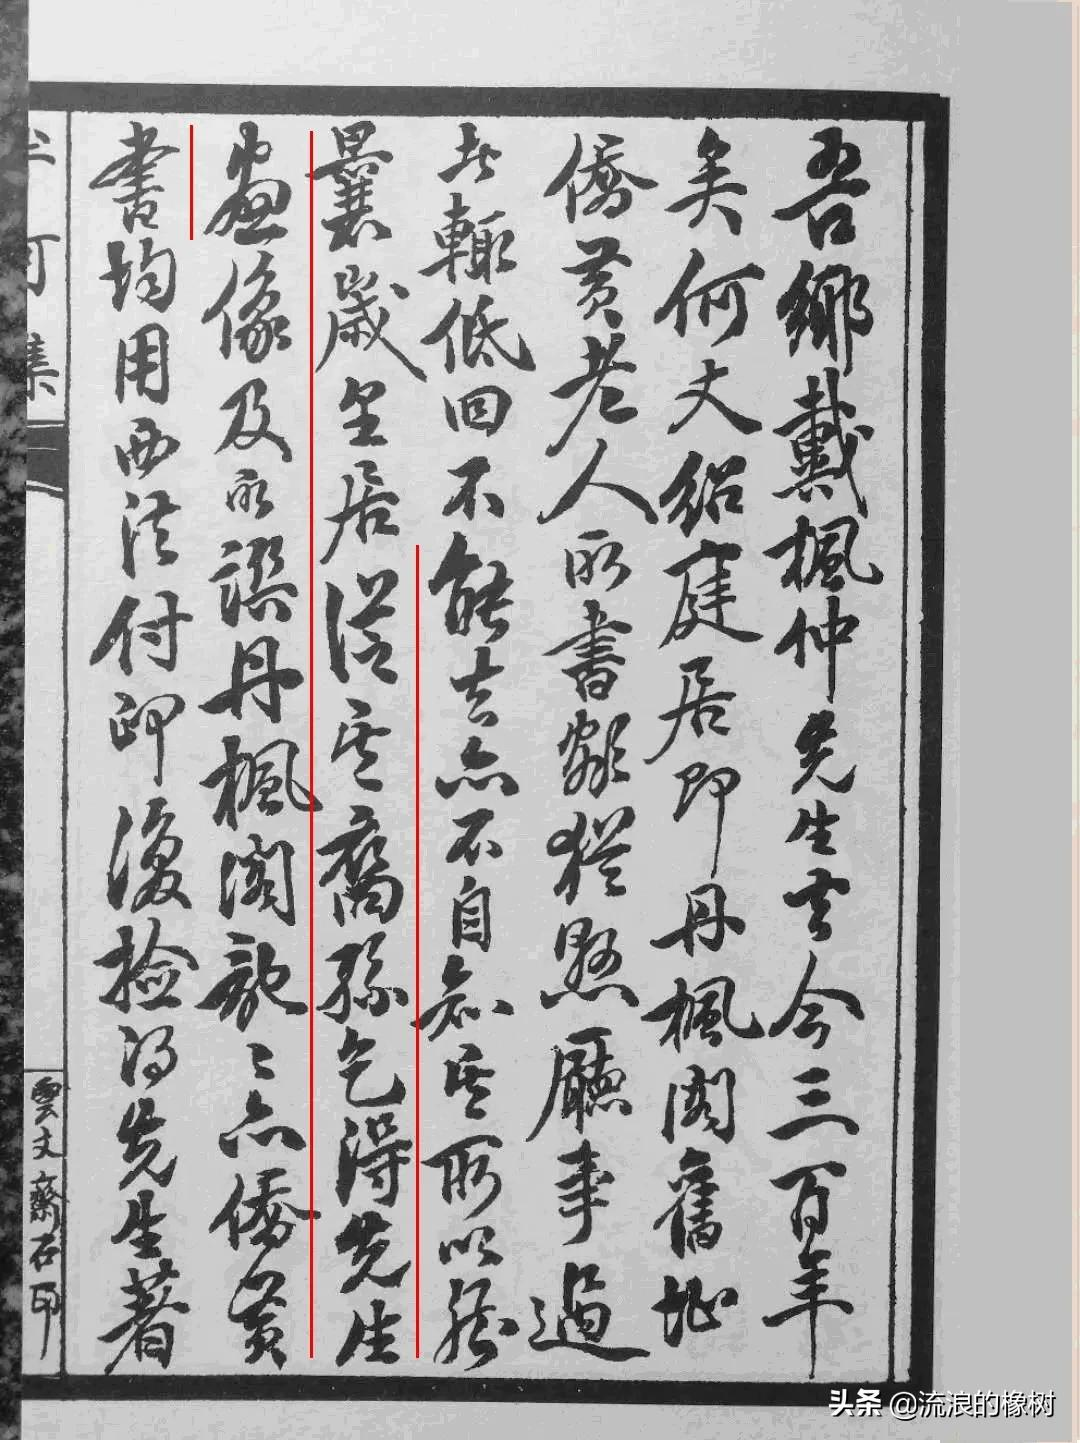 吾鄉戴楓仲先生去今三百年
矣何丈紹庭居即丹楓閣舊址
僑黃老人所書額猶懸廳事過
此輒低回不能去亦不自知其所以然
曩歲里居從其裔孫乞得先生
畫像及所譔丹楓閣記記亦僑黃
書均用西法付印復檢得先生著
集
雲文齋石印
头条 @流浪的橡树